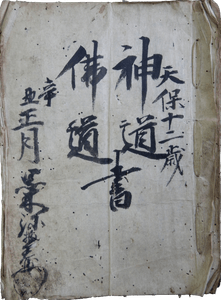 天保十二歳
神道書
佛道
辛丑正月